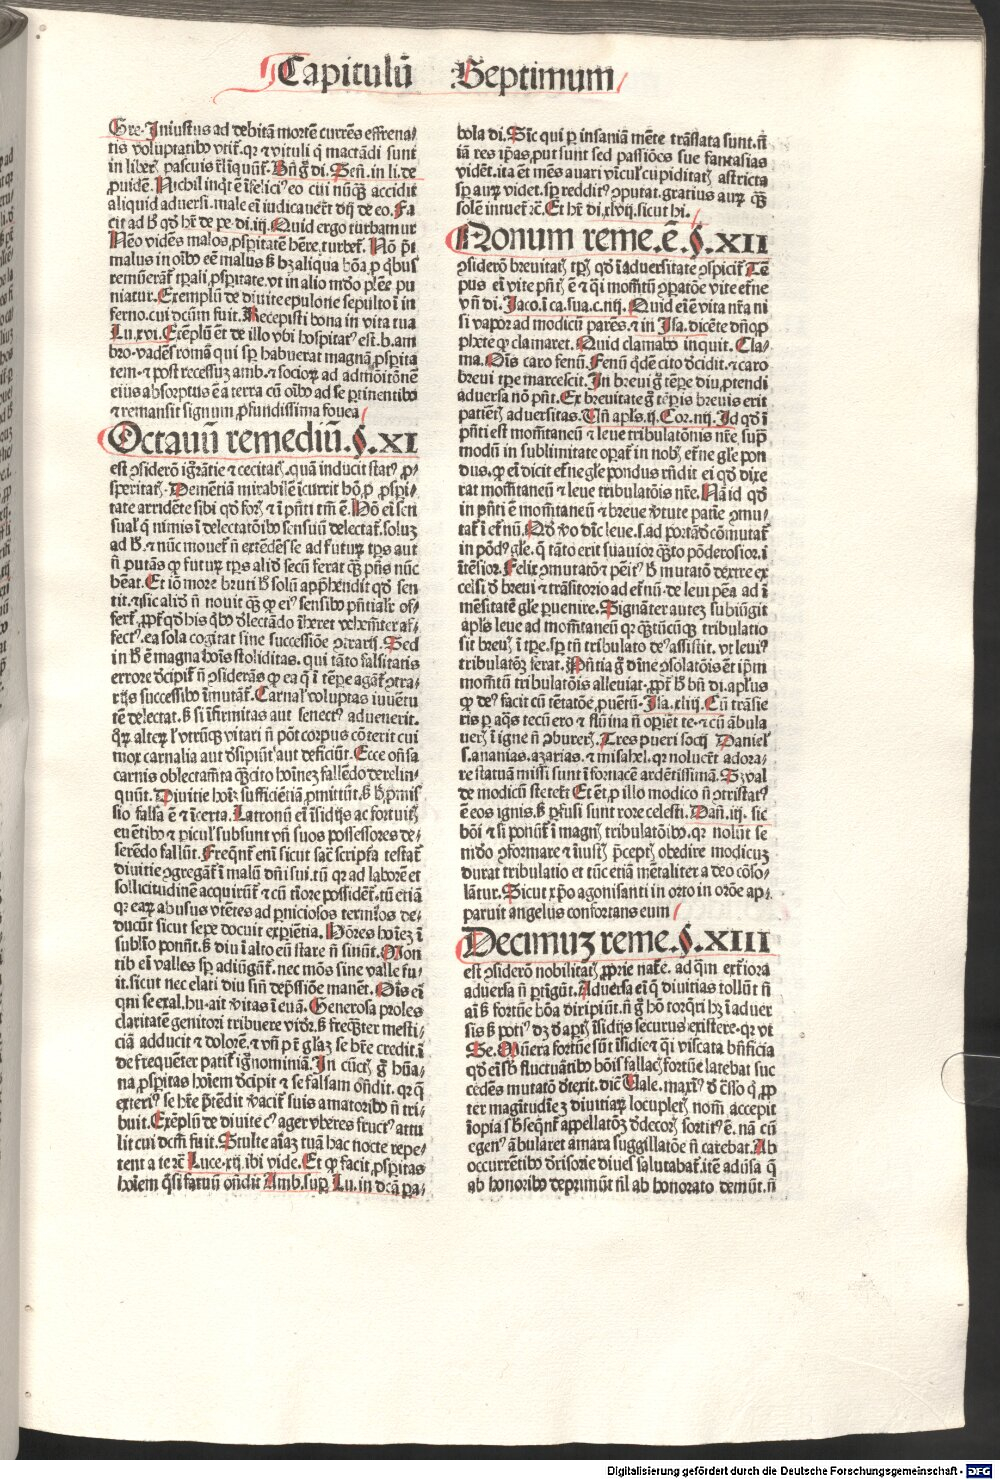 Capitulū Septimum
Gre. Iniustus ad debitā mortē currēs effrena⸗
tis voluptatibꝰ vtit̃. qr ⁊ vituli q̃ mactādi sunt
in liberꝭ pascuis r̃linquūt̃. Bn̄ g̃ di. Sen̄. in li. de
ꝓuidē. Nichil inqͥt ē īfeliciꝰ eo cui nūqꝫ accidit
aliquid aduersi. male eī iudicauer̃t dij de eo. Fa
cit ad ẜ qd̄ hr̄ de pe. di. iij. Quid ergo turbamur
Nēo vidēs malos ꝓsꝑitatē hr̄e, turbet̃. Nō p̄i
malus in oībꝰ eē malus ẜ hꝫ aliqua bōa ꝓ qͥbus
remūerāt̃ tꝑali ꝓsꝑitate. vt in alio mūdo plēe pu
niatur. Exemplū de diuite epulone sepulto ī in
ferno. cui dcūm fuit. Recepisti bona in vita tua
Lu. xvi. Exēplū ēt de illo vbi hospitatꝰ est. b. am
bro. vadēs romā qui sꝑ habuerat magnā ꝓsꝑita
tem. ⁊ post recessuꝫ amb. ⁊ socioꝝ ad admōitōnē
eius absorptus ē a terra cū oībꝰ ad se ꝑtinentibꝰ
⁊ remansit signum ꝓfundissima fouea
Octauū remediū. §. XI
est ꝯsiderō ignr̄antie ⁊ cecitatꝭ. quā inducit statꝰ ꝓ⸗
speritatꝭ. Dementiā mirabilē īcurrit hō, ꝓ ꝓspi⸗
tate arridēte sibi qd̄ forꝭ ⁊ ī pn̄ti tm̄ ē. Hō eī sen
sualꝭ q̄ nimis ī delectatōibꝰ sensuū delectat̃. soluꝫ
ad ẜ. ⁊ nūc mouet̃ n̄ extendēs se ad futuꝝ tp̄s aut
n̄ putās ꝙ futuꝝ tp̄s aliud secū ferat qꝫ pn̄s nūc
hēat. Et iō more bruti ẜ solū app̄hendit qd̄ sen
tit. ⁊ sic aliud n̄ nouit qꝫ ꝙ eiꝰ sensibꝰ pn̄tialꝭ of⸗
fert̃. ꝓpt̃ qd̄ his qͥbꝰ delectādo īheret vehemēter af⸗
fectꝰ. ea sola cogitat sine successiōe ꝯtrarij. Sed
in ẜ ē magna hoīs stoliditas. qui tāto falsitatis
errore decipit̃ n̄ ꝯsiderās ꝙ ea q̄ ī tꝑe agāt̃ ꝯtra⸗
rijs successibꝰ īmutāt̃. Carnalꝭ voluptas iuuētu
tē delectat. ẜ si īfirmitas aut senectꝰ aduenerit.
qͥꝝ alteꝝ l̓ vtrūqꝫ vitari n̄ pōt corpus cōterit cui
mox carnalia aut disipiūt̃ aut deficiūt. Ecce oñsa
carnis oblectamēta qꝫcito hoīneꝫ fallēdo derelin⸗
quūt. Diuitie hoīꝫ sufficiētiā ꝓmittūt. ẜ ẜ ꝓmis
sio falsa ē ⁊ īcerta. Latronū eī īsidijs ac fortuitꝭ
euētibꝰ ⁊ ꝑiculꝭ subsunt vn̄ suos possessores de⸗
serēdo fallūt. Freqn̄t̃ enī sicut sac̄ scriptura testat̃
diuitie ꝯgregāt̃ ī malū dn̄i sui. tū qr ad laborē et
sollicitudinē acquirūt̃ ⁊ cū tīore possidēt̃. tū etiā
qr eaꝝ abusus vtētes ad ꝑniciosos termīos de⸗
ducūt sicut sepe docuit exꝑiētia. Hōres hoīeꝫ ī
sublīo ponūt. ẜ diu ī alto eū stare n̄ sinūt. Mon
tibꝰ eī valles sꝑ adiūgūt̃. nec mōs sine valle fu⸗
it. sicut nec elati diu sin̄ dep̄ssiōe manēt. Oīs eī
qͥ se exal. hu. ait veritas ī euā. Generosa proles
claritatē genitori tribuere vide̓. ẜ freqn̄ter mesti⸗
ciā adducit ⁊ dolorē. ⁊ vn̄ pr̄ ī gl̓aꝫ se hr̄e credit. ī
de frequēter patit̃ ignominiā. In cūctꝭ g̃ hūa⸗
na ꝓsꝑitas hoīem decipit ⁊ se falsam oñdit. qr q̄
exteriꝰ se hr̄e p̄tēdit veracit̃ suis amatoribꝰ n̄ tri⸗
buit. Exēplū de diuite cꝰ ager vberes fructꝰ attu
lit cui dcm̄ fuit. Stulte aīaꝫ tuā hac nocte repe⸗
tent a te ⁊c̄. Luce. xij. ibi vide. Et ꝙ facit ꝓsꝑitas
hoīem qͣsi fatuū oñdit Amb. suꝑ Lu. in dcā pa⸗
bola di. Sic qui ꝑ insaniā mēte trāslata sunt. n̄
iā res ip̄as, put sunt sed passiōes sue fantasias
vidēt. ita ēt mēs auari vīculꝭ cupiditatꝭ astricta
sꝑ auꝝ videt. sꝑ redditꝰ ꝯputat. gratius auꝝ qꝫ
solē intuet̃ ⁊c̄. Et hr̄ di. xlvij. sicut hi.
Nonum reme. ē. §. XII
ꝯsiderō breuitatꝭ tp̄ꝭ qd̄ ī aduersitate ꝯspicit̃. Tē
pus eī vite pn̄tꝭ ē ⁊ qͥ momētū ꝯparatōe vite eter̄ne
vn̄ di. Iaco. ī ca. sua. c. iiij. Quid eī ē vita nr̄a ni
si vapor ad modicū parēs. ⁊ in Isa. dicēte dn̄o ꝓ
phete ꝙ clamaret. Quid clamabo inquit. Cla⸗
ma. Oīs caro fenū. Fenū qͥdē cito decidit. ⁊ caro
breui tꝑe marcescit. In breui g̃ tꝑe diu ꝓtendi
aduersa nō pn̄t. Ex breuitate g̃ tꝑis breuis erit
patiētꝭ aduersitas. Tn̄ apl̓s. ij. Cor. iiij. Id qd̄ ī
pn̄ti est momētaneū ⁊ leue tribulatōnis nr̄e, supͣ
modū in sublimitate oꝑat̃ in nobꝭ et̃ne gl̓e pon
dus. ꝙ eī dicit et̃ne gl̓e pondus rn̄dit ei qd̄ dixe
rat momētaneū ⁊ leue tribulatōis nr̄e. Nā id qd̄
in pn̄ti ē momētaneū ⁊ breue vtute patiē ꝯmu⸗
tat̃ ī et̃nū. Qd̄ vo dic̄ leue. s. ad portādū cōmutat̃
in pōdꝰ gl̓e. q̄ tāto erit suauior qꝫto pōderosior. ī
itēsior. Felix ꝯmutatō ⁊ pēitꝰ ẜ mutatō dextre ex
celsi de breui ⁊ trāsitorio ad et̃nū. de leui pēa ad ī
mēsitatē gl̓e ꝑuenire. Signāter auteꝫ subiūgit
apl̓s leue ad momētaneū qr quātūcūqꝫ tribulatio
sit breuꝭ ī tꝑe. sꝑ tn̄ tribulato deꝰ assistit. vt leuiꝰ
tribulatōeꝫ ferat. Pn̄tia g̃ dīne ꝯsolatōis ēt ip̄m
momētū tribulatōis alleuiat. ꝓpt̃ ẜ bn̄ di. apl̓us
ꝙ deꝰ facit cū tētatōe ꝓuētū. Isa. xliij. Cū trāsie
ris ꝑ aqͣs tecū ero ⁊ flumīa n̄ oꝑiēt te. ⁊ cū ābula
uerꝭ ī igne n̄ ꝯbureris. Tres pueri socij Daniel̓
s. ananias. azarias. ⁊ misahel. qr noluer̃t adora⸗
re statuā missi sunt ī fornacē ardētissimā. Sꝫ val
de modicū stetert̃ Et ēt ꝓ illo modico n̄ ꝯtristatꝰ
ē eos ignis. ẜ ꝑfusi sunt rore celesti. Dan̄. iij. sic
bōi ⁊ si ponūt̃ ī magnꝭ tribulatōibꝰ. qr nolūt se
mūdo ꝯformare ⁊ īiustꝭ p̄ceptꝭ obedire modicuꝫ
durat tribulatio et tūc etiā mētaliter a deo cōso⸗
lātur. Sicut xp̄o agonisanti in orto in orōe ap⸗
paruit angelus confortans eum
Decimuꝫ reme. §. XIII
est ꝯsiderō nobilitatꝭ ꝓprie nat̄e. ad qͣm ext̃iora
aduersa n̄ ꝑtigūt. Aduersa eī q̄ diuitias tollūt n̄
aī ẜ fortūe bōa diripiūt. n̄ g̃ hō torqri hꝫ ī aduer
sis ẜ potiꝰ dꝫ de aptꝭ īsidijs securus existere. qr vt
Se. Munera fortūe sūt īsidie ⁊ qͥ viscata bn̄ficia
qd̄ eīsꝫ fluctuātibꝰ bōis fallacꝭ fortūe latebat suc
cedēs mutatō detexit. dic̄ Uale. maxīꝰ de c̄slo q̃ ꝓp
ter magītudinēꝫ diuitiaꝝ locupletꝭ nom̄ accepit
īopia sbseqn̄t̃ appellatōꝫ decocꝭ sortitꝰ ē. nā cū
egenꝰ ābularet amara suggillatōe n̄ carebat. Ab
occurrētibꝰ derisorie diues salutabat̃. itē aduersa q̄
ab honoribꝰ deprimūt nl̓ ab honorato demūt. n̄
Digitalisierung gefördert durch die Deutsche Forschungsgemeinschaft - DFG